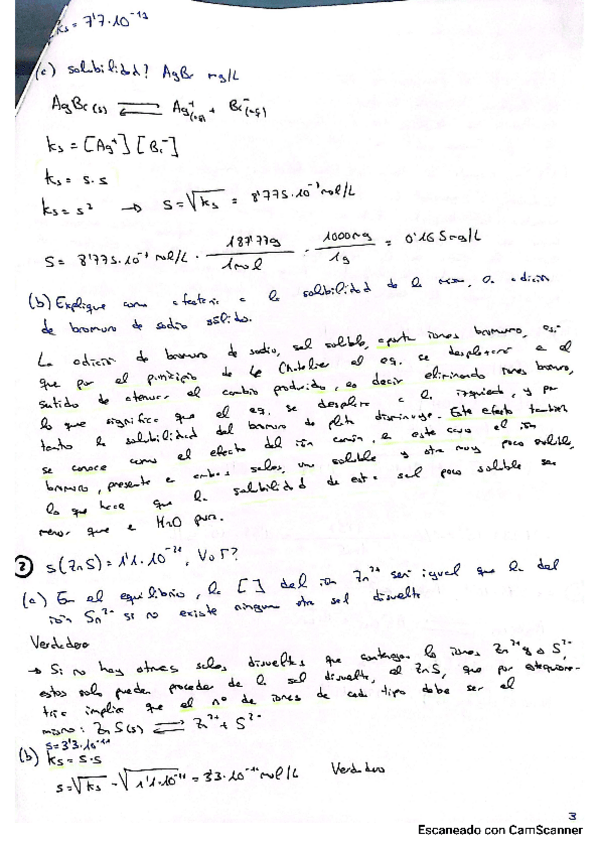 ks = 7'7·10⁻¹³
(a) solubilidad? AgBr mg/L
AgBr(s) ⇌ Ag⁺(aq) + Br⁻(aq)
ks = [Ag⁺][Br⁻]
ks = s·s
ks = s² → s = √ks = 8'775·10⁻⁷ mol/L
s = 8'775·10⁻⁷ mol/L · 187'77g / 1mol · 1000mg / 1g = 0'165mg/L
(b) Explique como afectaría a la solubilidad de la misma, la adición
de bromuro de sodio sólido.
La adición de bromuro de sodio, sal soluble, aporta iones bromuro, así
que por el principio de Le Chatelier el eq. se desplazará en el
sentido de atenuar el cambio producido, es decir eliminando iones bromuro,
lo que significa que el eq. se desplaza a la izquierda, y por
tanto la solubilidad del bromuro de plata disminuye. Este efecto también
se conoce como el efecto del ión común, en este caso el ión
bromuro, presente en ambas sales, una soluble y otra muy poco soluble,
lo que hace que la solubilidad de esta sal poco soluble sea
menor que en H₂O pura.
2 s(ZnS) = 1'1·10⁻²¹, V o F?
(a) En el equilibrio, la [ ] del ión Zn²⁺ será igual que la del
ión Sn²⁻ si no existe ninguna otra sal disuelta
Verdadero
→ Si no hay otras sales disueltas que contengan los iones Zn²⁺ o S²⁻,
estos solo pueden proceder de la sal disuelta, el ZnS, que por estequiome-
tría implica que el nº de iones de cada tipo debe ser el
mismo: ZnS(s) ⇌ Zn²⁺ + S²⁻
s = 3'3·10⁻¹¹
(b) ks = s·s
s = √ks = √1'1·10⁻²¹ = 3'3·10⁻¹¹ mol/L Verdadero
3
Escaneado con CamScanner